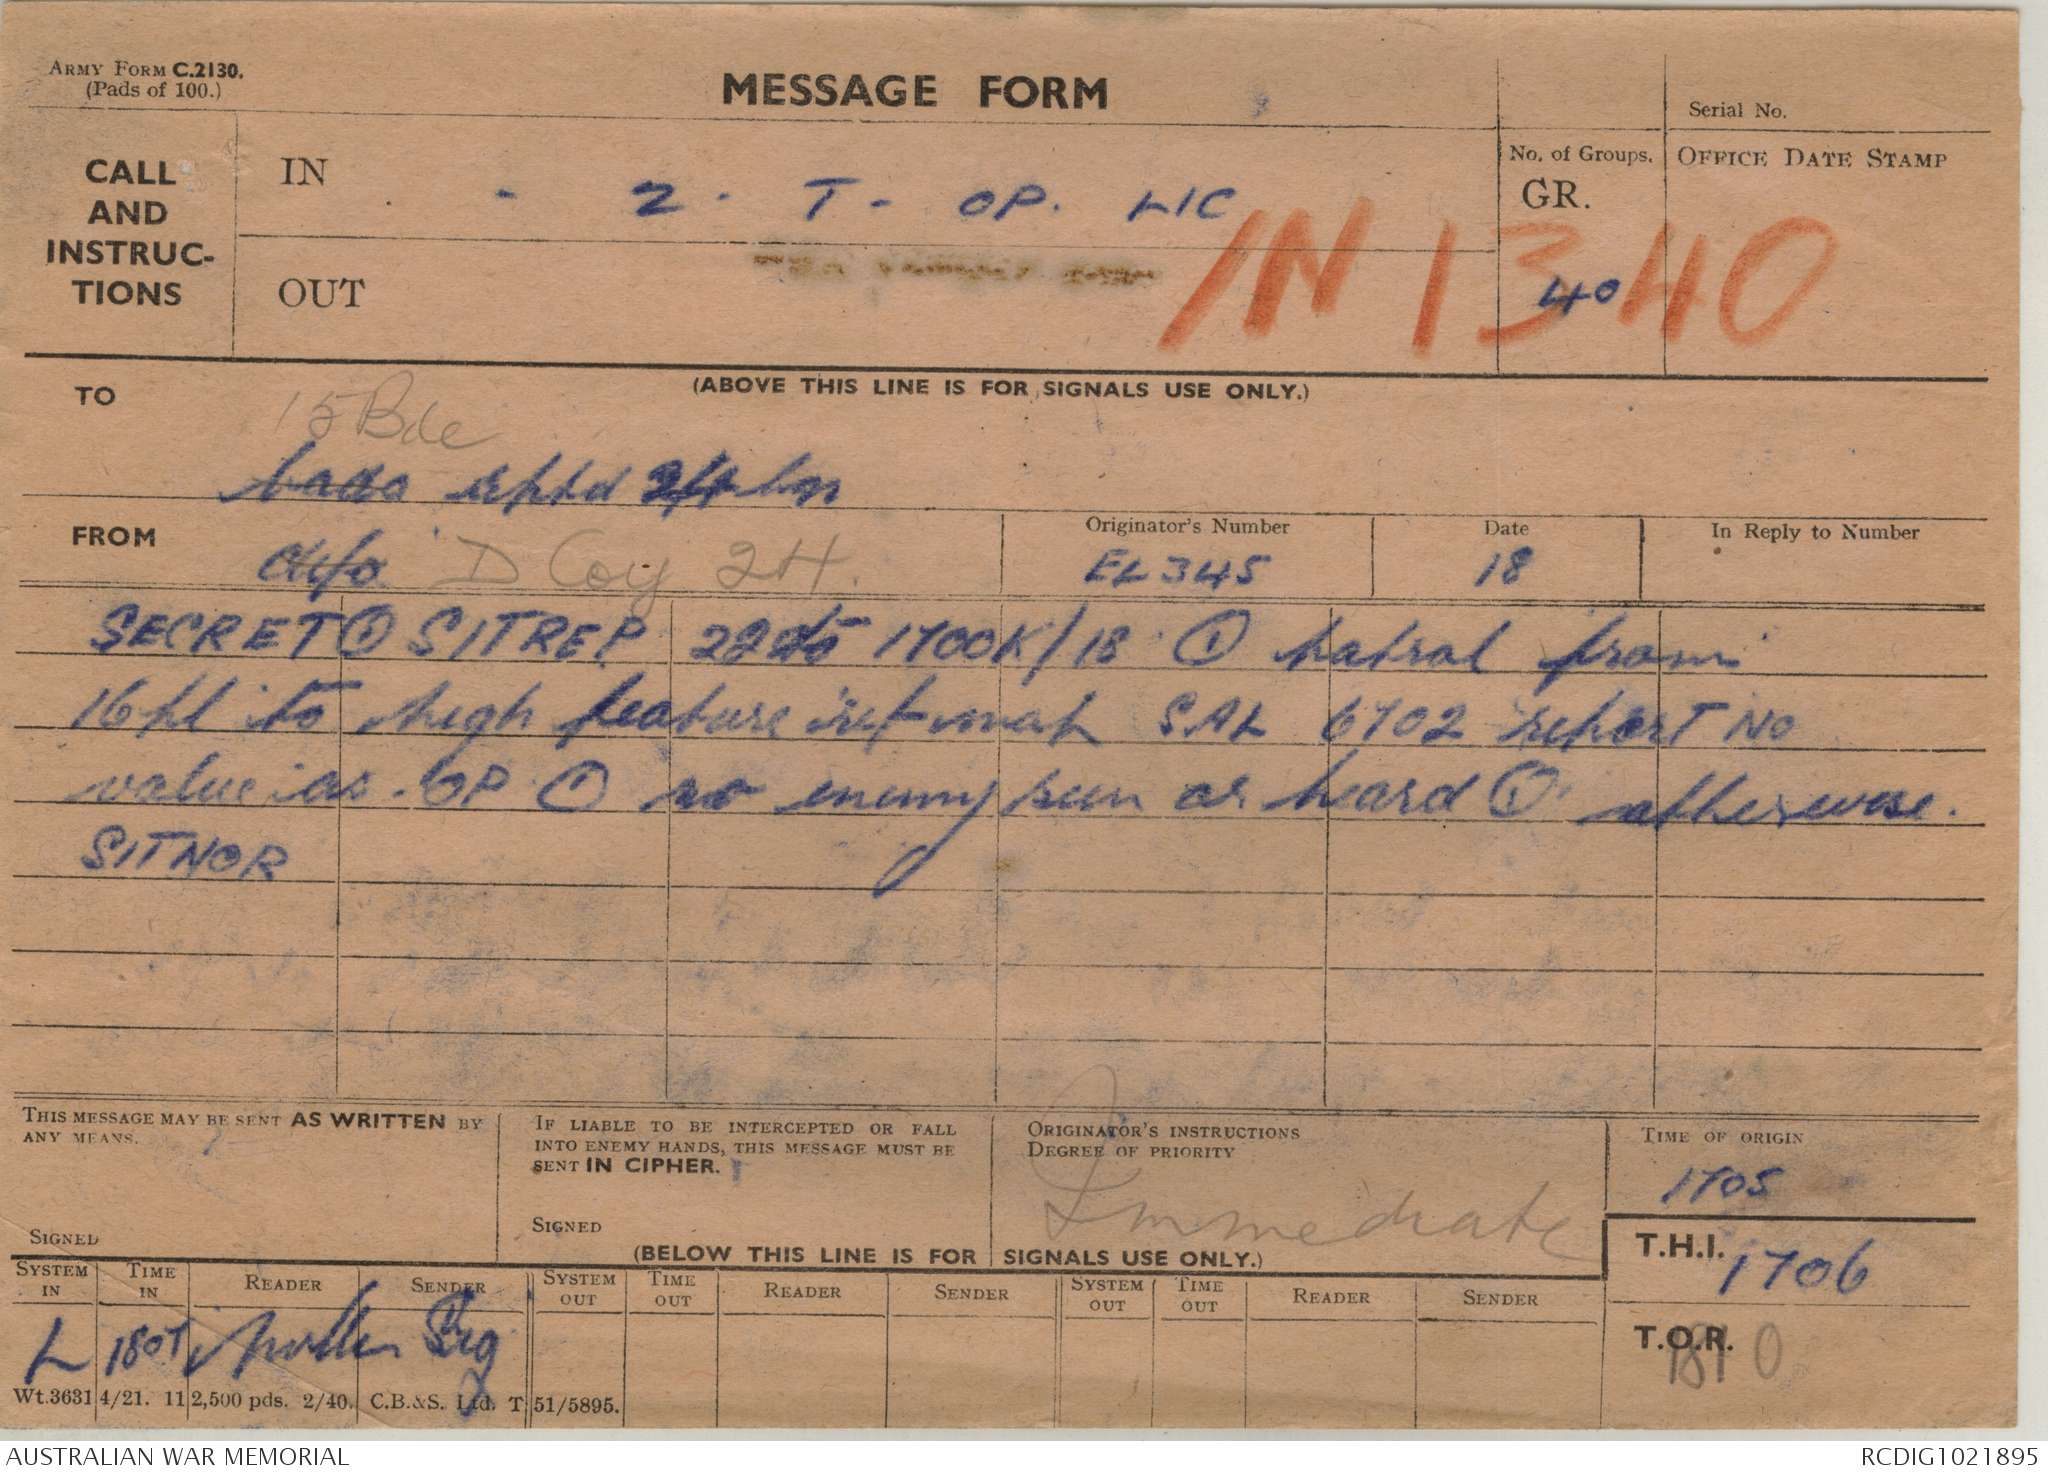 ARMY FORM C.2130.
(Pads of 100.)
MESSAGE FORM
Serial No.
CALL
AND
INSTRUC-
TIONS
IN
- Z - T - OP. LIC
No. of Groups.
GR.
40
OFFICE DATE STAMP
OUT
IN 1340
(ABOVE THIS LINE IS FOR SIGNALS USE ONLY.)
TO
15 Bde
rptd 2/4 bn
FROM
D Coy 24.
Originator's Number
EL345
Date
18
In Reply to Number
SECRET ① SITREP 22 to 1700K/18 ① patrol from
16 pl to high feature ref map SAL 6702 report NO
value as OP ① no enemy seen or heard ① otherwise.
SITNOR
THIS MESSAGE MAY BE SENT AS WRITTEN BY
ANY MEANS.
SIGNED
IF LIABLE TO BE INTERCEPTED OR FALL
INTO ENEMY HANDS, THIS MESSAGE MUST BE
SENT IN CIPHER.
SIGNED
ORIGINATOR'S INSTRUCTIONS
DEGREE OF PRIORITY
Immediate
TIME OF ORIGIN
1705
(BELOW THIS LINE IS FOR SIGNALS USE ONLY.)
T.H.I. 1706
SYSTEM IN
TIME IN
READER
SENDER
SYSTEM OUT
TIME OUT
READER
SENDER
SYSTEM OUT
TIME OUT
READER
SENDER
L 1807 Sig
T.O.R. 1810
Wt.3631 4/21. 11 2,500 pds. 2/40. C.B.&S. Ltd. T 51/5895.
AUSTRALIAN WAR MEMORIAL
RCDIG1021895